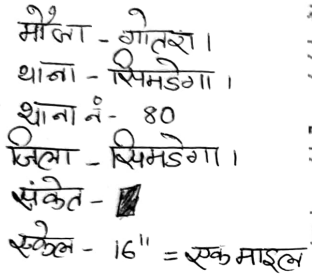 मौजा - गोतरा ।
थाना - सिमडेगा ।
थाना नं - 80
जिला - सिमडेगा ।
संकेत -
स्केल - 16" = एक माइल